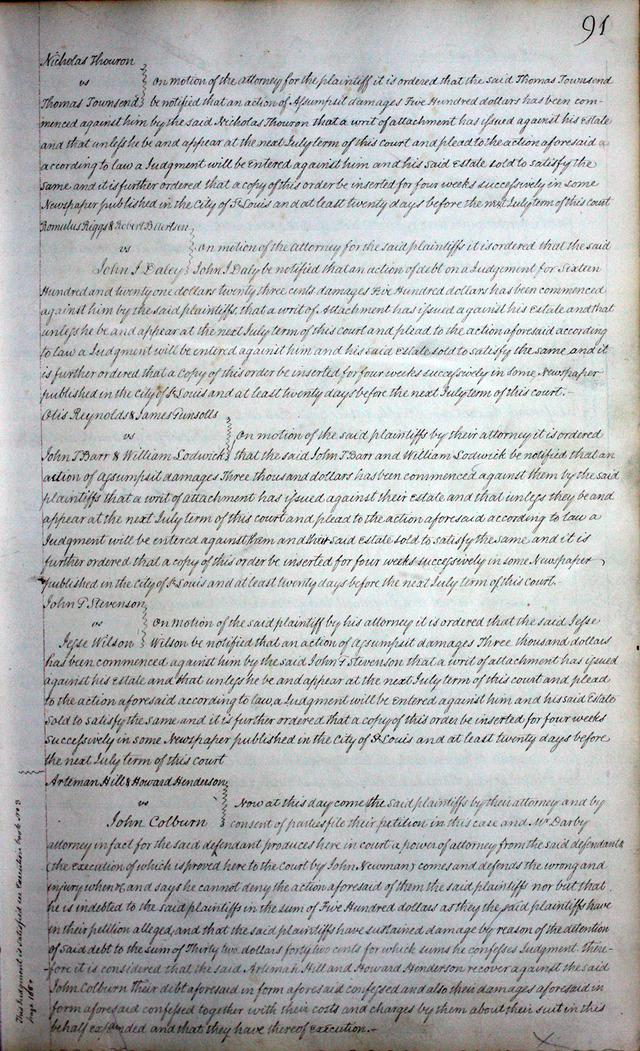 91
Nicholas Thouron
vs On motion of the attorney for the plaintiff it is ordered that the said Thomas Townsend
Thomas Townsend be notified that an action of Assumpsit damages Five Hundred dollars has been com-
menced against him by the said Nicholas Thouron that a writ of attachment has issued against his Estate
and that unless he be and appear at the next July term of this court and plead to the action aforesaid a
according to law a Judgment will be Entered against him and his said Estate sold to satisfy the
same and it is further ordered that a copy of this order be inserted for four weeks successively in some
Newspaper published in the City of St Louis and at least twenty days before the next July term of this court
Romulus Riggs & Robert
vs On motion of the attorney for the said plaintiffs it is ordered that the said
John J Daley John J Daly be notified that an action of debt on a Judgement for Sixteen
Hundred and twenty one dollars twenty three cents damages Five Hundred dollars has been commenced
against him by the said plaintiffs, that a writ of Attachment has issued against his Estate and that
unless he be and appear at the next July term of this court and plead to the action aforesaid according
to law a Judgment will be entered against him and his said Estate sold to satisfy the same and it
is further ordered that a copy of this order be inserted for four weeks successively in some Newspaper
published in the City of St Louis and at least twenty days before the next July term of this court.-
Otis Reynolds & James
vs On motion of the said plaintiffs by their attorney it is ordered
John T Barr & William Lodwick that the said John T Barr and William Lodwick be notified that an
action of assumpsit damages Three thousand dollars has been commenced against them by the said
plaintiffs that a writ of attachment has issued against their Estate and that unless they be and
appear at the next July term of this court and plead to the action aforesaid according to law a
Judgment will be entered against them and their said Estate sold to satisfy the same and it is
further ordered that a copy of this order be inserted for four weeks successively in some Newspaper
published in the City of St Louis and at least twenty days before the next July term of this court.
John P. Stevenson
vs On motion of the said plaintiff by his attorney it is ordered that the said Jesse
Jesse Wilson Wilson be notified that an action of assumpsit damages Three thousand dollars
has been commenced against him by the said John P Stevenson that a writ of attachment has issued
against his Estate and that unless he be and appear at the next July term of this court and plead
to the action aforesaid according to law, a Judgment will be entered against him and his said Estate
sold to satisfy the same and it is further ordered that a copy of this order be inserted for four weeks
successively in some Newspaper published in the City of St Louis and at least twenty days before
the next July term of this court
Arteman Hill & Howard Henderson
vs Now at this day come the said plaintiffs by their attorney and by
John Colburn consent of parties file their petition in this case and Mr Darby
attorney in fact for the said defendant produces here in court a power of attorney from the said defendant
(the Execution of which is proved here to the Court by John Newman) comes and defends the wrong and
injury when &c and says he cannot deny the action aforesaid of them the said plaintiffs nor but that
he is indebted to the said plaintiffs in the sum of Five Hundred dollars as they the said plaintiffs have
in their petition alleged, and that the said plaintiffs have sustained damage by reason of the detention
of said debt to the sum of Thirty two dollars forty two cents for which sums he confesses Judgment. There-
fore it is considered that the said Arteman Hill and Howard Henderson recover against the said
John Colburn their debt aforesaid in form aforesaid confessed and also their damages aforesaid in
form aforesaid confessed together with their costs and charges by them about their suit in this
behalf expended and that they have thereof Execution.-
This Judgment is satisfied see Execution